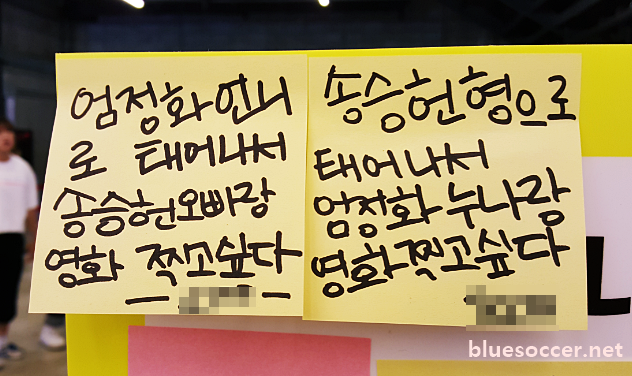 엄정화 언니
로 태어나서
송승헌오빠랑
영화 찍고싶다
송승헌 형으로
태어나서
엄정화 누나랑
영화찍고싶다
bluesoccer.net